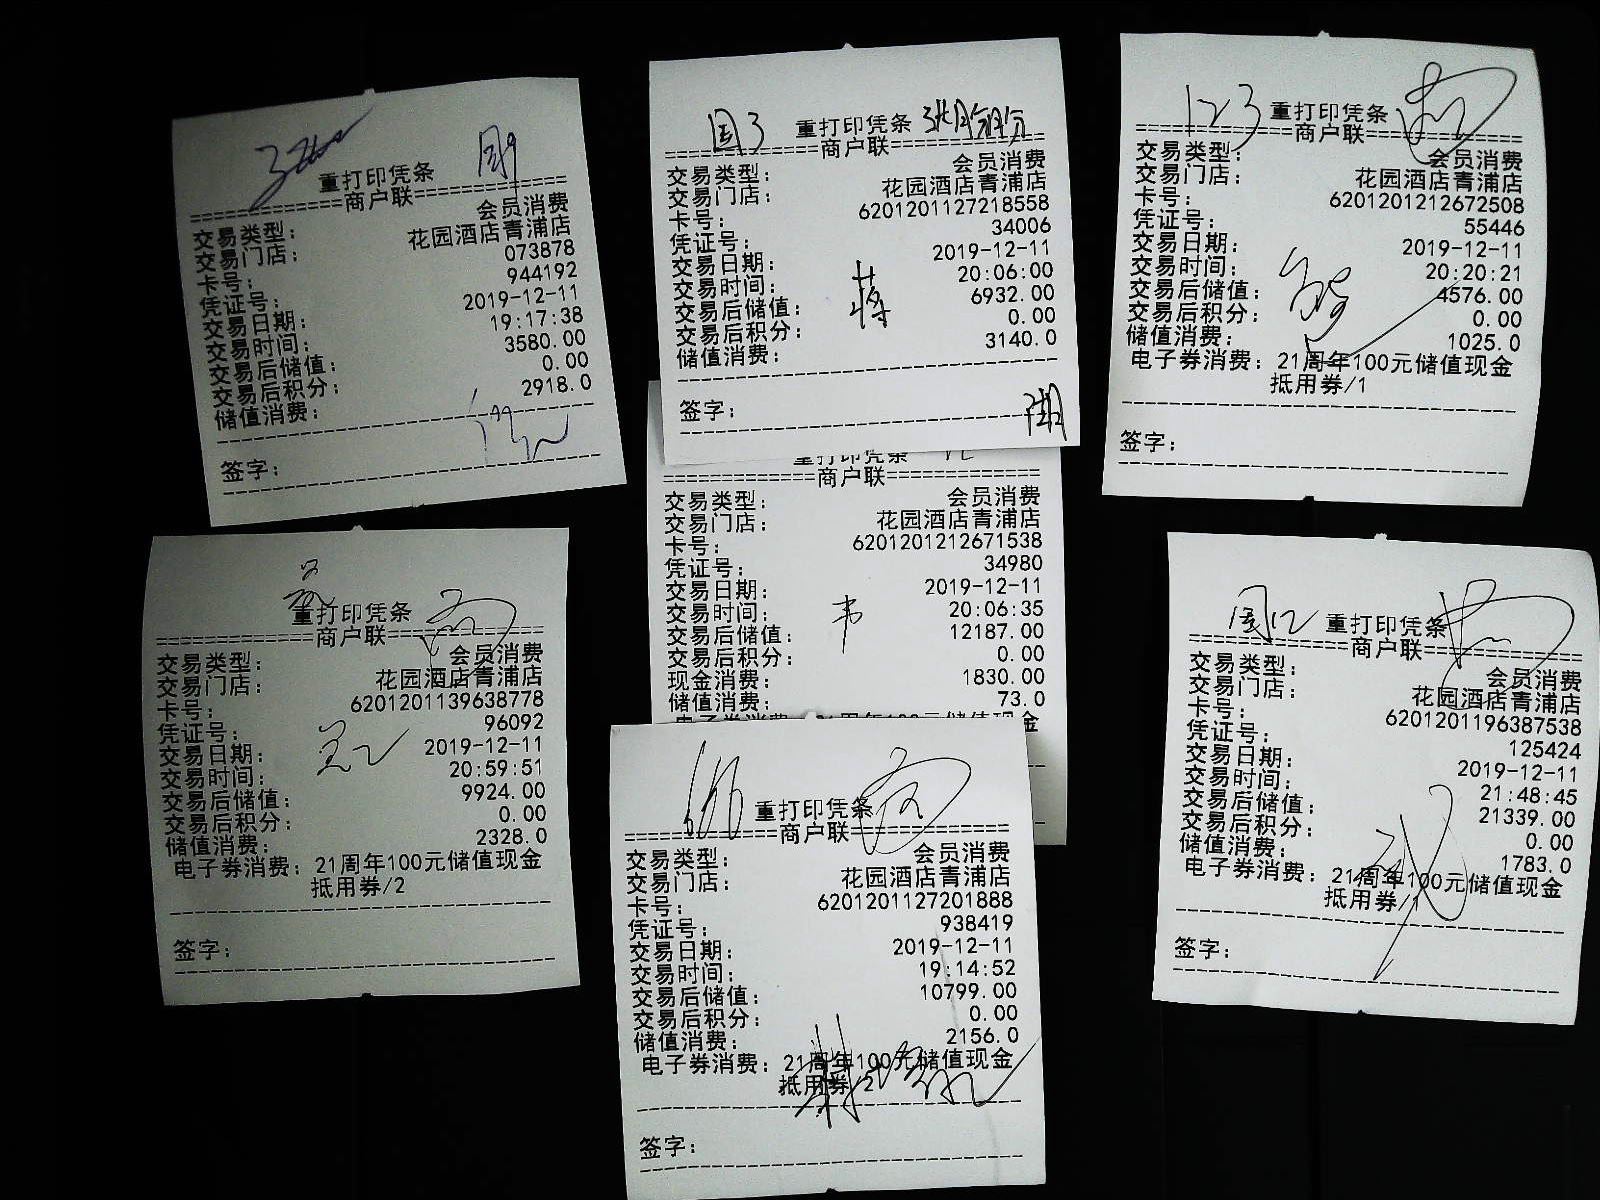 重打印凭条
================商户联================
交易类型: 会员消费
交易门店: 花园酒店青浦店
卡号: 073878
凭证号: 944192
交易日期: 2019-12-11
交易时间: 19:17:38
交易后储值: 3580.00
交易后积分: 0.00
储值消费: 2918.0
签字:
国3 重打印凭条
================商户联================
交易类型: 会员消费
交易门店: 花园酒店青浦店
卡号: 6201201127218558
凭证号: 34006
交易日期: 2019-12-11
交易时间: 20:06:00
交易后储值: 6932.00
交易后积分: 0.00
储值消费: 3140.0
蒋
签字:
123 重打印凭条
================商户联================
交易类型: 会员消费
交易门店: 花园酒店青浦店
卡号: 6201201212672508
凭证号: 55446
交易日期: 2019-12-11
交易时间: 20:20:21
交易后储值: 4576.00
交易后积分: 0.00
储值消费: 1025.0
电子券消费: 21周年100元储值现金
抵用券/1
签字:
重打印凭条
================商户联================
交易类型: 会员消费
交易门店: 花园酒店青浦店
卡号: 6201201139638778
凭证号: 96092
交易日期: 2019-12-11
交易时间: 20:59:51
交易后储值: 9924.00
交易后积分: 0.00
储值消费: 2328.0
电子券消费: 21周年100元储值现金
抵用券/2
签字:
重打印凭条
================商户联================
交易类型: 会员消费
交易门店: 花园酒店青浦店
卡号: 6201201212671538
凭证号: 34980
交易日期: 2019-12-11
交易时间: 20:06:35
交易后储值: 12187.00
交易后积分: 0.00
现金消费: 1830.00
储值消费: 73.0
电子券消费: 21周年100元储值现金
重打印凭条
================商户联================
交易类型: 会员消费
交易门店: 花园酒店青浦店
卡号: 6201201127201888
凭证号: 938419
交易日期: 2019-12-11
交易时间: 19:14:52
交易后储值: 10799.00
交易后积分: 0.00
储值消费: 2156.0
电子券消费: 21周年100元储值现金
抵用券/2
签字:
重打印凭条
================商户联================
交易类型: 会员消费
交易门店: 花园酒店青浦店
卡号: 6201201196387538
凭证号: 125424
交易日期: 2019-12-11
交易时间: 21:48:45
交易后储值: 21339.00
交易后积分: 0.00
储值消费: 1783.0
电子券消费: 21周年100元储值现金
抵用券/1
签字: